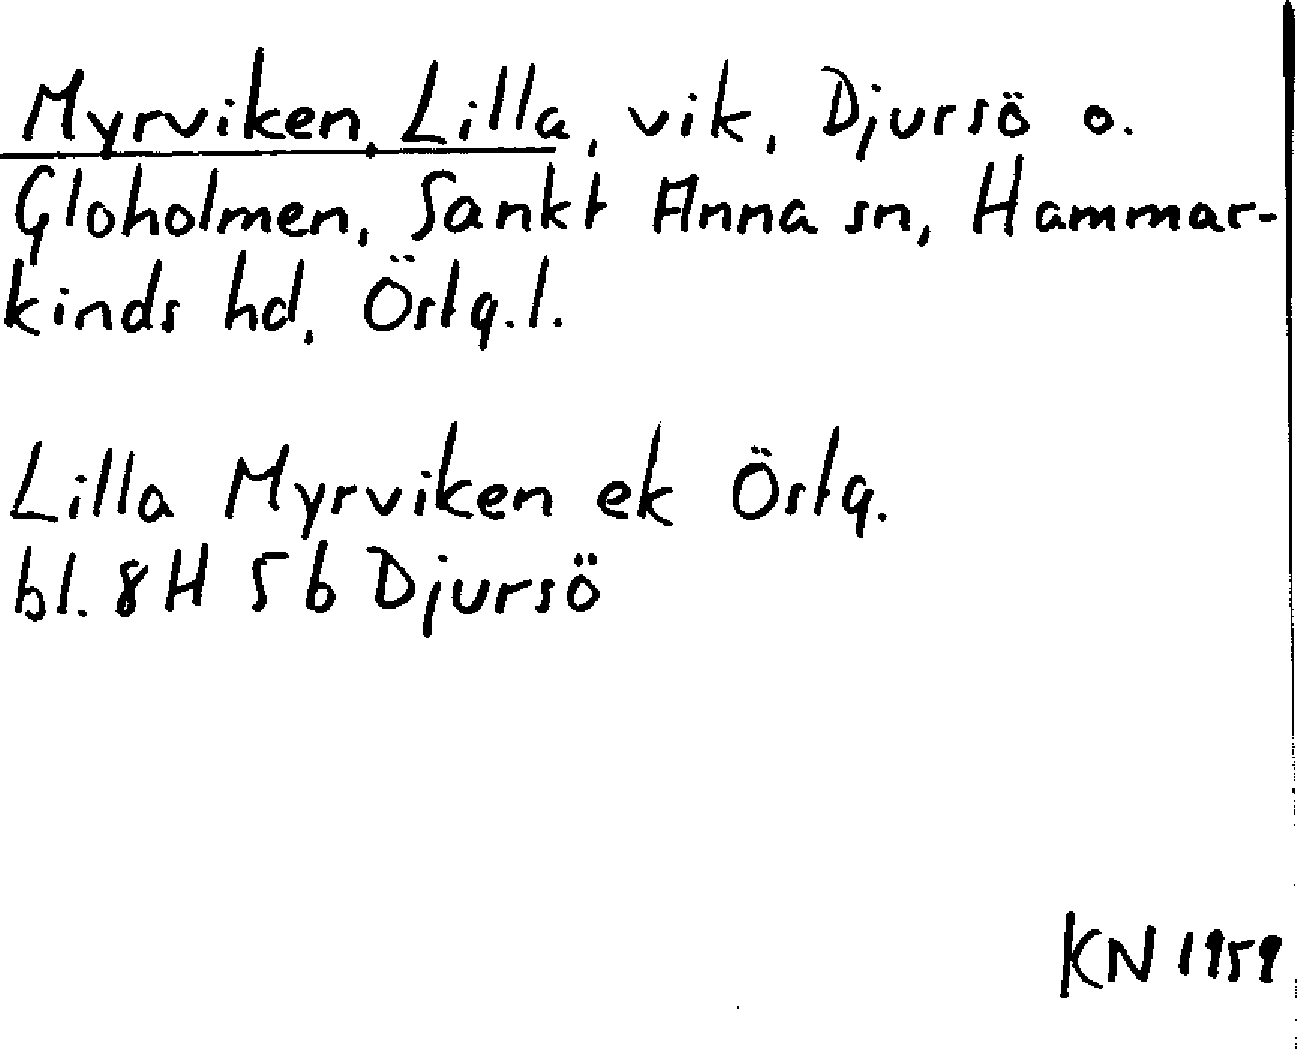 Myrviken, Lilla, vik, Djursö o.
Gloholmen, Sankt Anna sn, Hammar-
kinds hd, Östg.l.
Lilla Myrviken ek Östg.
bl. 8H 5b Djursö
KN 1959